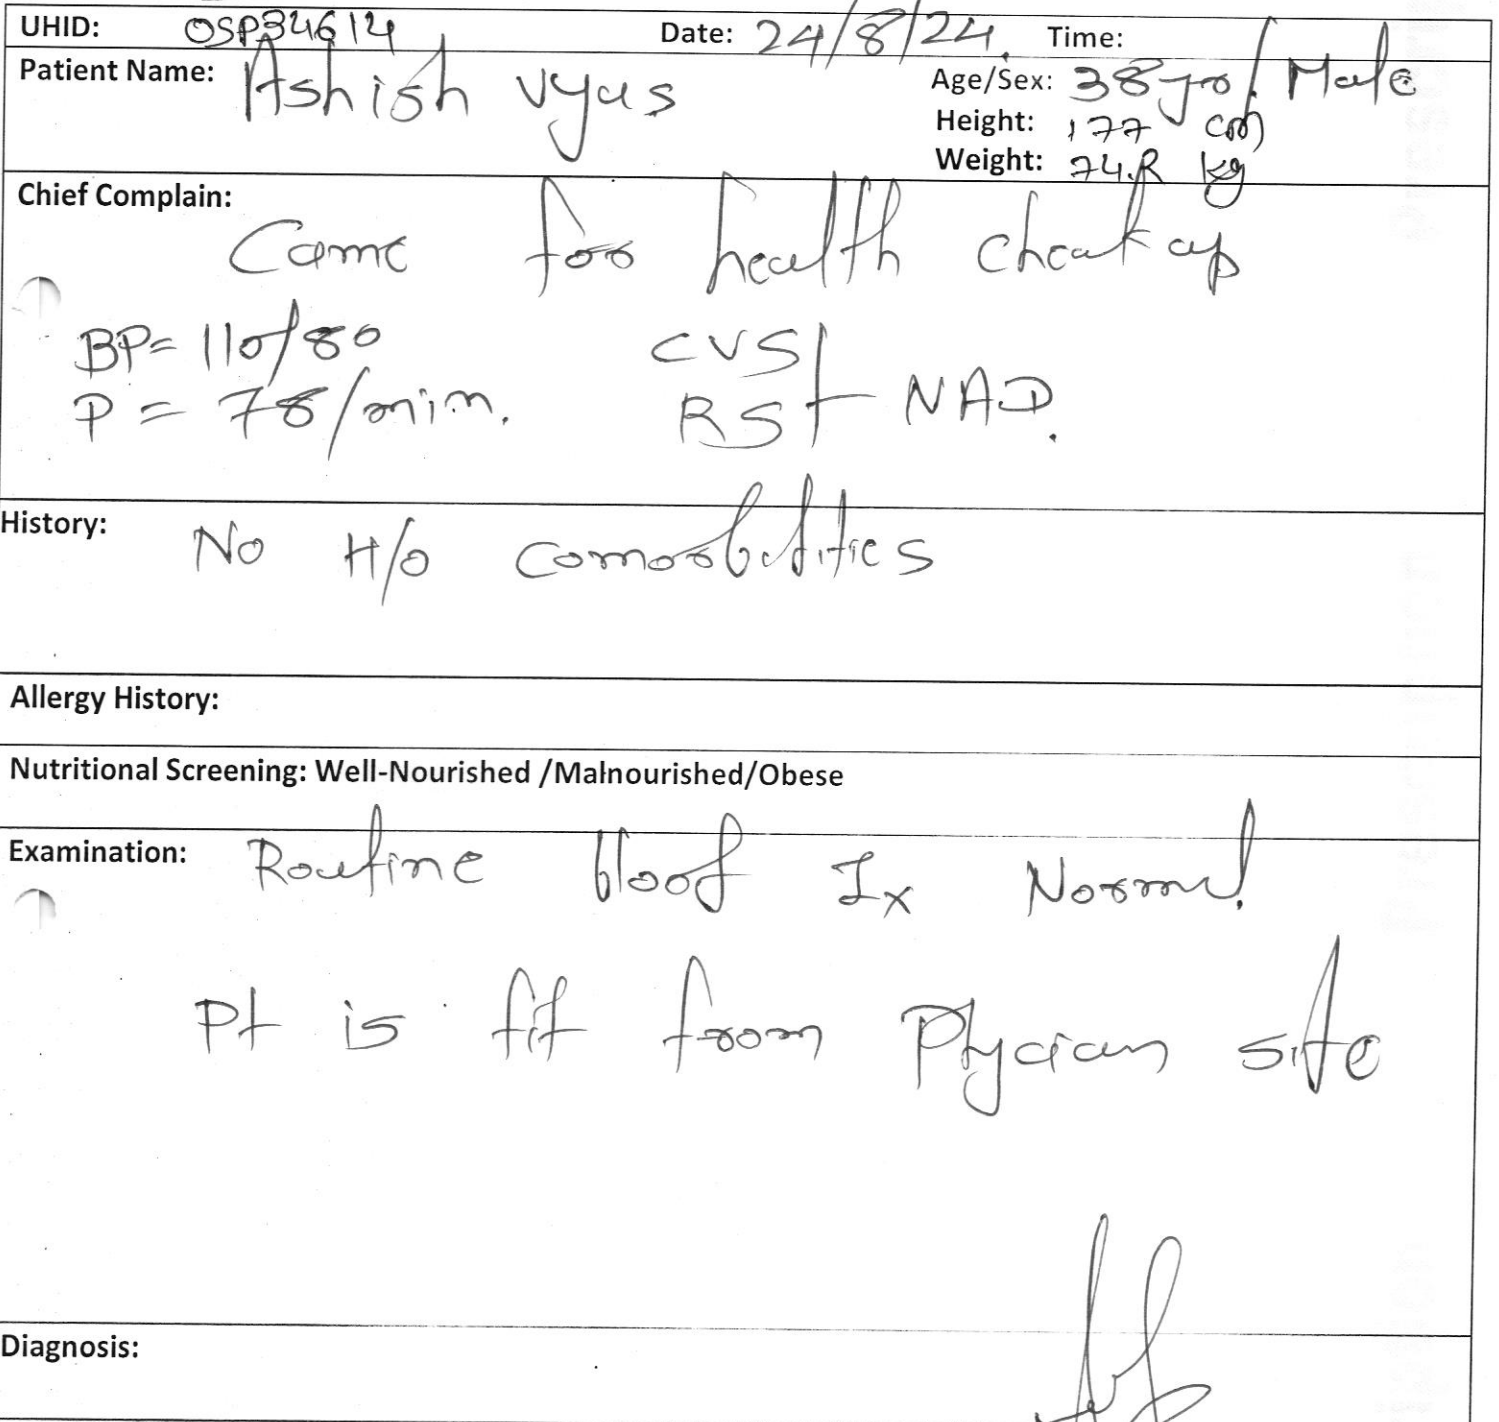 UHID: OSP34614 Date: 24/8/24. Time:
Patient Name: Ashish vyas Age/Sex: 38 yrs/ Male
Height: 177 cm
Weight: 74. kg
Chief Complain:
Came for health cheakup
BP= 110/80 CVS
P = 78/min. RS NAD.
History: No H/o comorbidities
Allergy History:
Nutritional Screening: Well-Nourished /Malnourished/Obese
Examination: Routine blood Ix Normal
Pt is fit from Phycian side
Diagnosis: